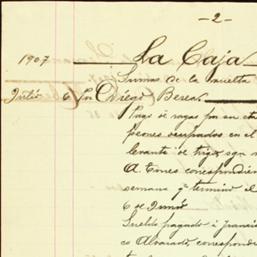 -2-
1907 La Caja
Sumas de la vuelta
Julio 6 Por Diego Berea.
Pago de rayas por su
peones ocupados en el
levante de trigo sgn
A. Cones correspondien
semana q terminó el
6 de Junio
Sueldo pagado á Francis
co Alvarado, correspond